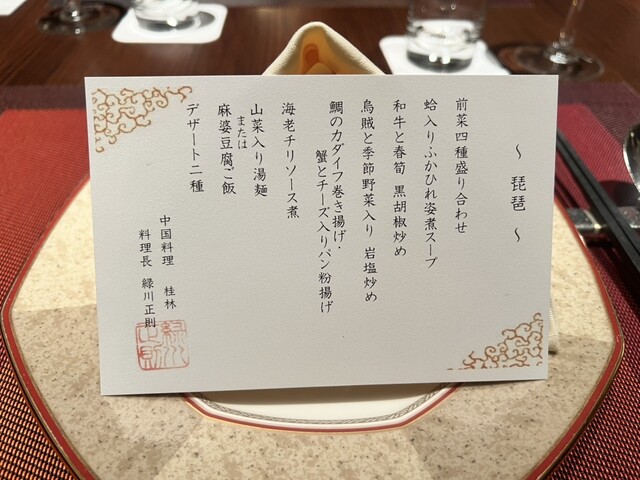 ～ 琵琶 ～
前菜四種盛り合わせ
蛤入りふかひれ姿煮スープ
和牛と春筍 黒胡椒炒め
烏賊と季節野菜入り 岩塩炒め
鯛のカダイフ巻き揚げ・
蟹とチーズ入りパン粉揚げ
海老チリソース煮
山菜入り湯麺
または
麻婆豆腐ご飯
デザート二種
中国料理 桂林
料理長 緑川正則